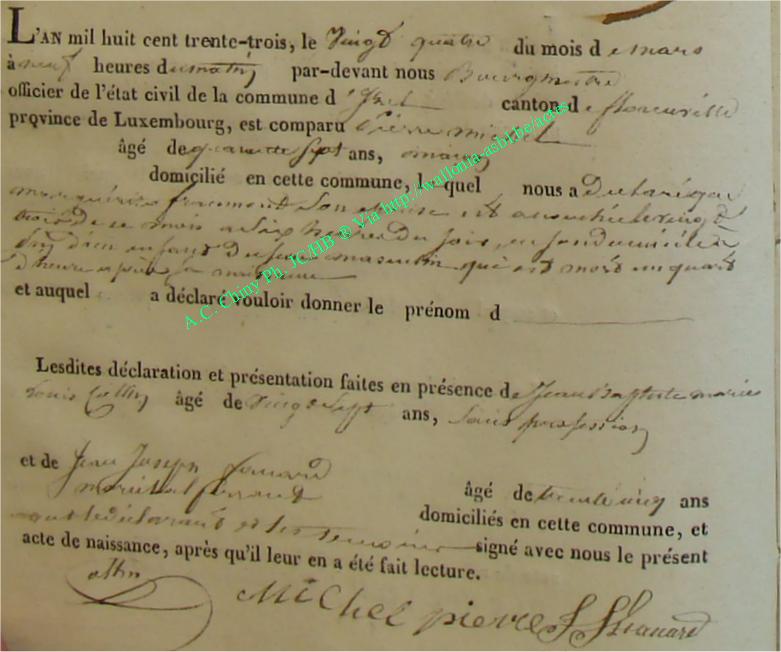 L'AN mil huit cent trente-trois, le Vingt quatre du mois d e mars
à neuf heures du matin par-devant nous Bourgmestre
officier de l'état civil de la commune d' Izel canton d e florenville
province de Luxembourg, est comparu Pierre michel
âgé de quarante Sept ans, maçon
domicilié en cette commune, lequel nous a Declaré que
marguerite son epouse est accouchée le vingt
trois De ce mois a Six heures Du Soir, en son domicile
D'un enfant Du Sexe masculin qui est mort un quart
D'heure après sa naissance
et auquel a déclaré vouloir donner le prénom d
Lesdites déclaration et présentation faites en présence de Jean Baptiste marie
Louis Collin âgé de Vingt Sept ans, Sans profession
et de Jean Joseph
maréchal ferrant âgé de trente cinq ans
domiciliés en cette commune, et
ont le déclarant et les temoins signé avec nous le présent
acte de naissance, après qu'il leur en a été fait lecture.
MiChel pierre
A.C. Chiny Ph. JC.HB ® Via http://wallonia-asbl.be/actes